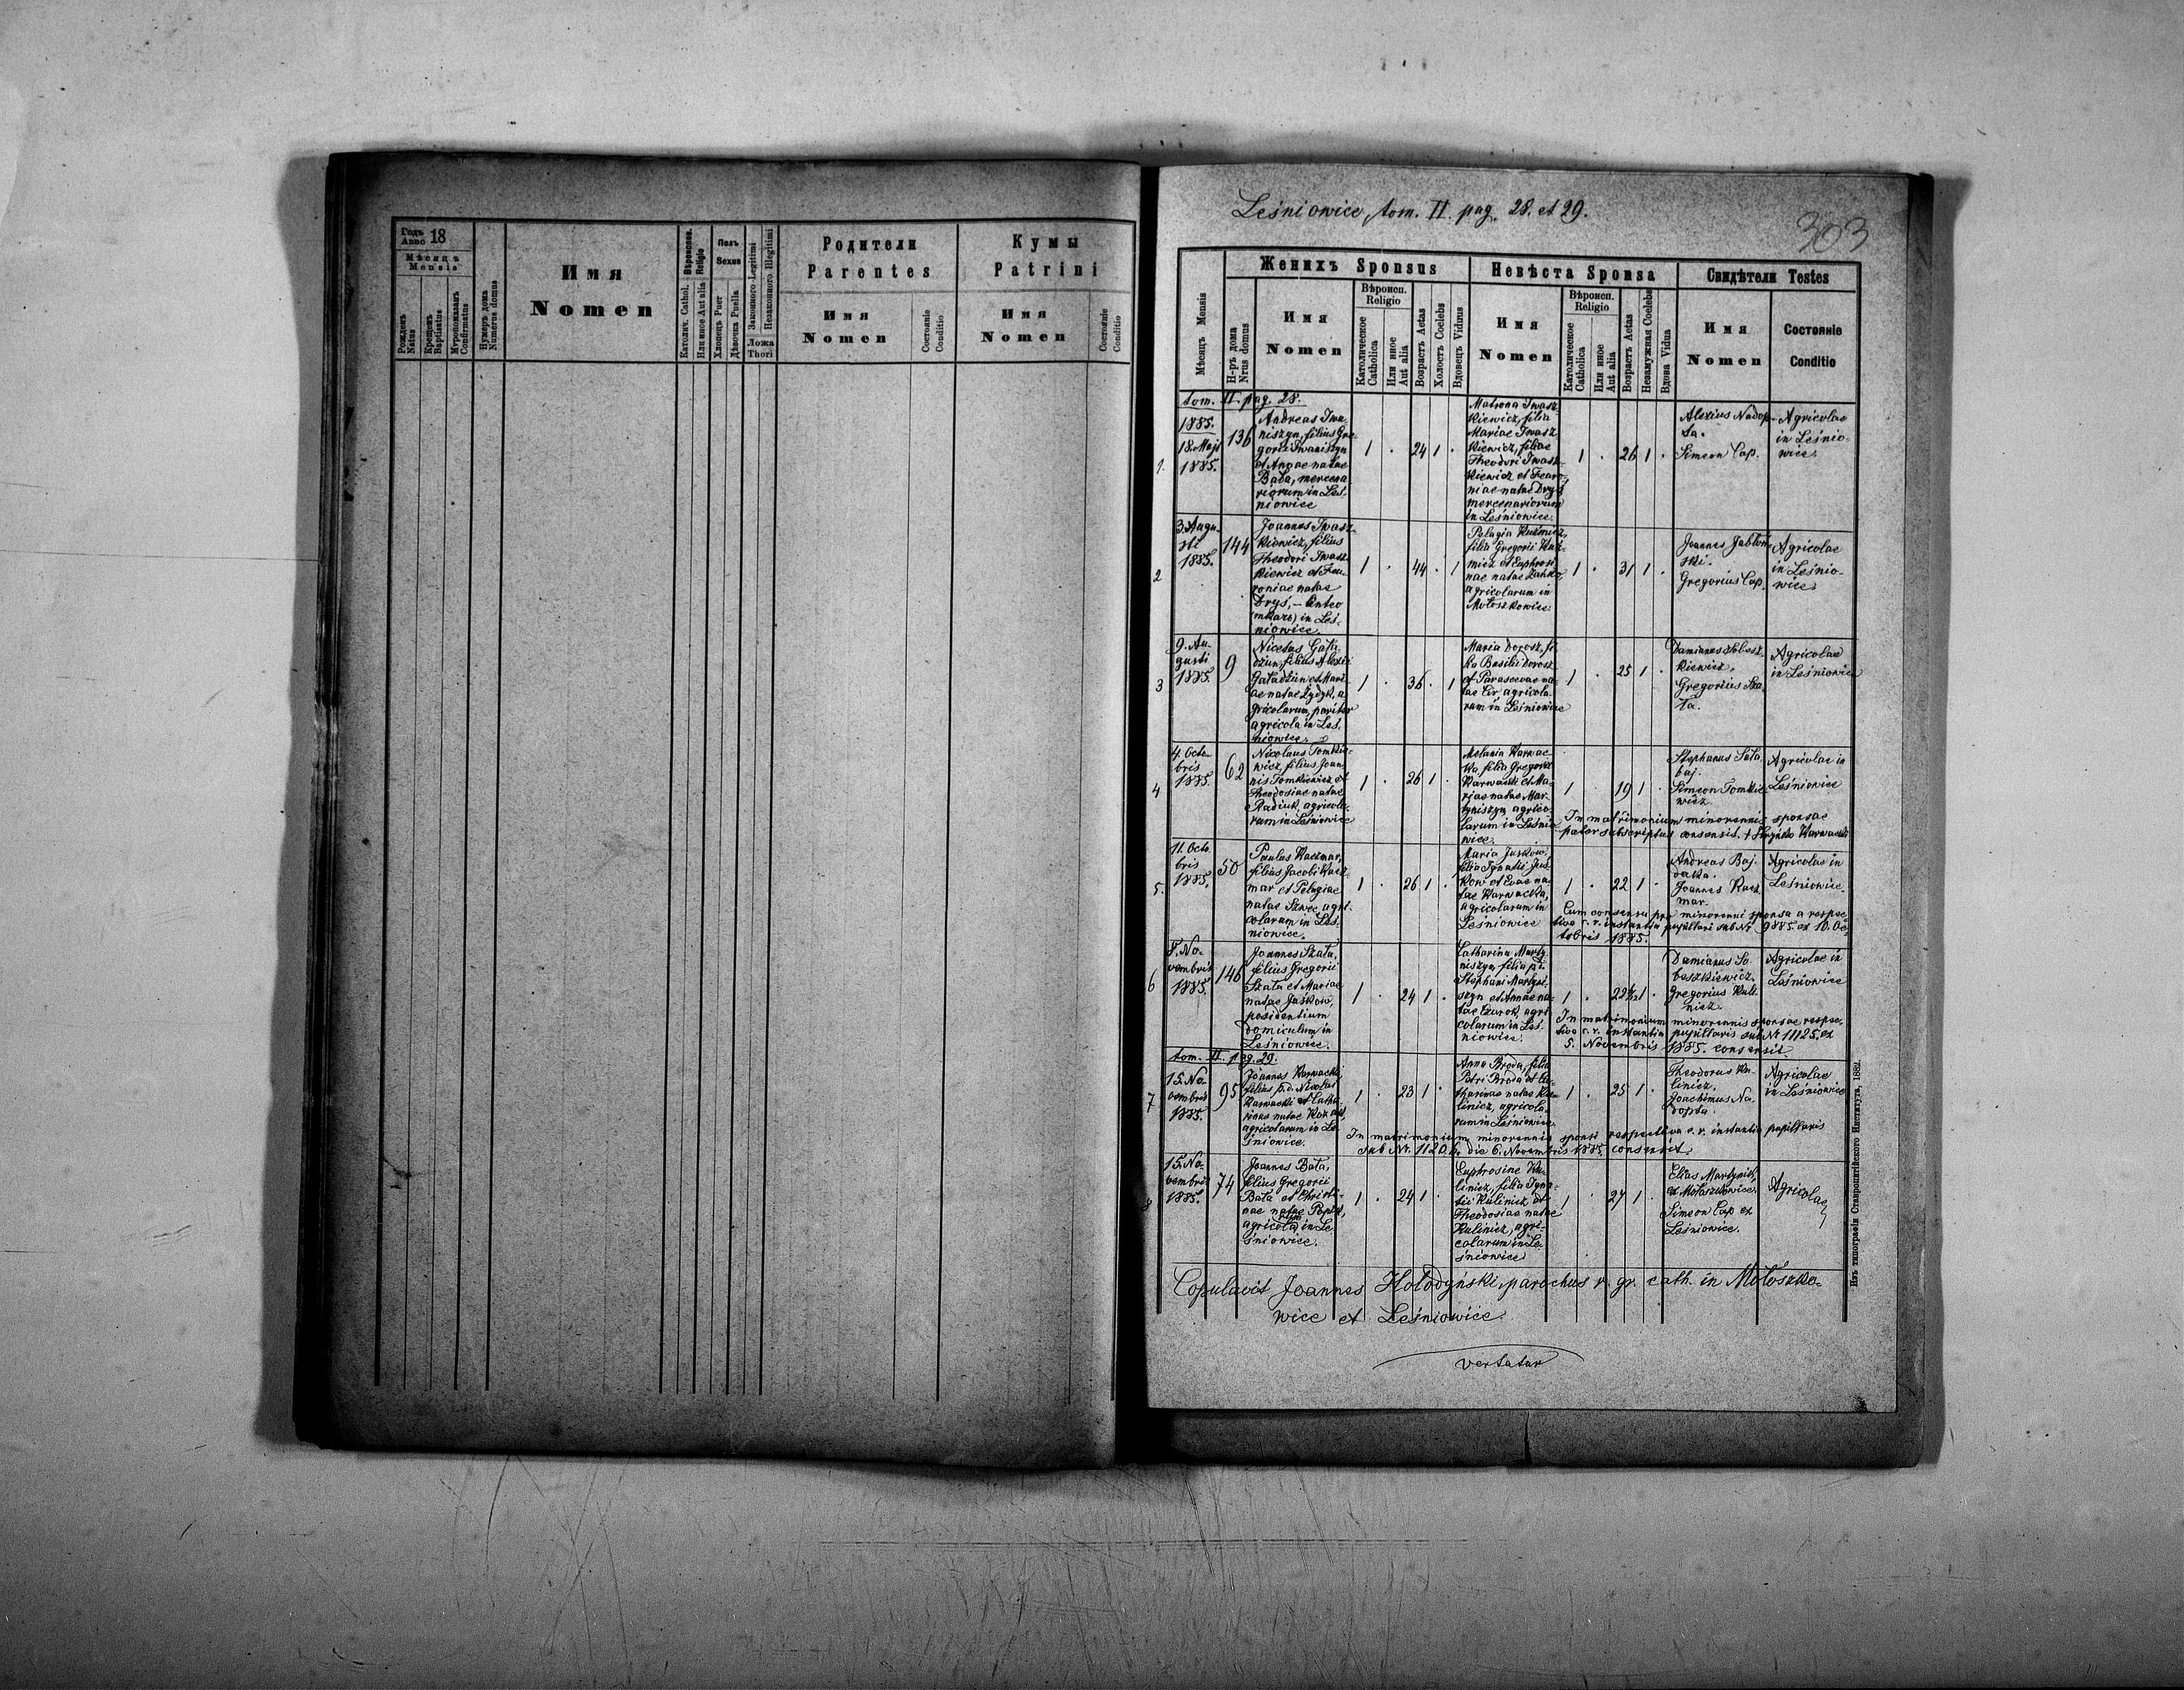 Годъ 18
Anno
Мѣсяцъ
Mensis
Рожденъ
Natus
Крещенъ
Baptisatus
Мѵропомазанъ
Confirmatus
Нумеръ дома
Numerus domus
Имя
Nomen
Вѣроиспов.
Religio
Католич. Cathol.
Или иное Aut alia
Полъ
Sexus
Хлопецъ Puer
Дѣвочка Puella
Законного Legitimi
Незаконного Illegitimi
Ложа
Thori
Родители
Parentes
Имя
Nomen
Состояніе
Conditio
Кумы
Patrini
Имя
Nomen
Состояніе
Conditio
Leśniowice, tom. II. pag. 28. et 29.
303
Мѣсяцъ Mensis
Женихъ Sponsus
Н-ръ дома
Nrus domus
Имя
Nomen
Вѣроисп.
Religio
Католическое
Catholica
Или иное
Aut alia
Возрастъ Aetas
Холостъ Coelebs
Вдовецъ Viduus
Невѣста Sponsa
Имя
Nomen
Вѣроисп.
Religio
Католическое
Catholica
Или иное
Aut alia
Возрастъ Aetas
Незамужная Coelebs
Вдова Vidua
Свидѣтели Testes
Имя
Nomen
Состояніе
Conditio
tom. II. pag. 28.
1.
1885.
18. Maji
1885.
136
Andreas Iwa-
niszyn, filius Gre-
gorii Iwaniszyn
et Annae natae
Bała, mercena
riorum in Leś-
niowice
1 . 24 1 .
Matrona Iwasz
kiewicz, filia
Mariae Iwasz
kiewicz, filiae
Theodori Iwasz-
kiewicz et Fewro-
niae natae Dryś
mercenariorum
in Leśniowice.
1 . 26 1 .
Alexius Nadop-
ta.
Simeon Cap.
Agricolae
in Leśnio-
wice.
2
3. Augu-
sti
1885.
144
Joannes Iwasz-
kiewicz, filius
Theodori Iwasz-
kiewicz et Feu-
roniae natae
Dryś,
in Leś-
niowice.
1 . 44 . 1
Pelagia Kuźmicz,
filia Gregorii Kuź-
micz et Euphrosi-
nae natae
agricolarum in
Mołoszkowice.
1 . 31 1 .
Joannes Jabłoń-
ski.
Gregorius Cap.
Agricolae
in Leśnio-
wice.
3
9. Au-
gusti
1885.
9
Nicetas Gała
dżun, filius Alexii
Gaładżun et Mari
ae natae Żydyk, a
gricolarum, pariter
agricola in Leś-
niowice.
1 . 36 . 1
Maria Dorosz, fi-
lia Basilii Dorosz
et Parascevae na-
tae agricola-
rum in Leśniowice
1 . 25 1 .
Damianus Sobesz
kiewicz.
Gregorius Sza
ła.
Agricolae
in Leśniowice
4
4. Octo-
bris
1885.
62
Nicolaus Tomkie-
wicz, filius Joan
nis Tomkiewicz et
Theodosiae natae
Radiuk, agricola-
rum in Leśniowice
1 . 26 1 .
Melania Karwac-
ka, filia Gregorii
Karwacki et Ma-
riae natae Mar-
tyniszyn agrico-
larum in Leśnio
wice.
1 . 19 1 .
Stephanus Sała
baj.
Simeon Tomkie-
wicz.
Agricolae in
Leśniowice
In matrimonium minorennis sponsae
pater subscriptus consensit. + Hryńko Karwacki
5.
11. Octo
bris
1885.
50
Paulus Kaczmar,
filius Jacobi Kacz-
mar et Pelagiae
natae Szwec agri-
colarum in Leś-
niowice.
1 . 26 1 .
Maria Juśków,
filia Ignatii Juś-
ków et Evae na-
tae Karwacka,
agricolarum in
Leśniowice
1 . 22 1 .
Andreas Baj-
daka.
Joannes Kacz
mar.
Agricolae in
Leśniowice.
Cum consensu pro minorenni sponsa a respec-
tiva c. r. instantia pupillari sub Nr 9885. ex 10. Oc-
tobris 1885.
6
8. No-
vembris
1885.
146
Joannes Szała,
filius Gregorii
Szała et Mariae
natae Juśków,
posidentium
domiculum in
Leśniowice.
1 . 24 1 .
Catharina Marty-
niszyn, filia p.d.
Stephani Martyni-
szyn et Annae na-
tae Czurok, agri-
colarum in Leś-
niowice.
1 . 22½ 1 .
Damianus So-
beszkiewicz.
Gregorius Kuli-
nicz.
Agricolae in
Leśniowice
In matrimonium minorennis sponsae respec-
tiva c. r. instantia pupillaris sub Nr 11125. ex
5. Novembris 1885. consensit.
tom. II. pag. 29.
7
15. No-
vembris
1885.
95
Joannes Karwacki,
filius p.d. Nicolai
Karwacki et Catha-
rinae natae
agricolarum in Le-
śniowice.
1 . 23 1 .
Anna Broda, filia
Petri Broda et Ca-
tharinae natae Ku-
linicz, agricola-
rum in Leśniowice.
1 . 25 1 .
Theodorus Ku-
linicz.
Joachimus Na-
dopta.
Agricolae
in Leśniowice
In matrimonium minorennis sponsi respectiva c. r. instantia pupillaris
sub Nr. die 6. Novembris 1885. consensit.
8
15. No-
vembris
1885.
74
Joannes Bała,
filius Gregorii
Bała et Christi-
nae natae
agricolarum in Le-
śniowice.
1 . 24 1 .
Euphrosine Ku-
linicz, filia Igna-
tii Kulinicz et
Theodosiae natae
Kulinicz, agri-
colarum in Le-
śniowice
1 . 27 1 .
Elias Martyniuk
ex Mołoszkowice.
Simeon Cap ex
Leśniowice.
Agricolae
Copulavit Joannes Hołodyński parochus r. gr. cath. in Mołoszko-
wice et Leśniowice.
vertatur
Изъ типографіи Ставропигійского Института, 1882.